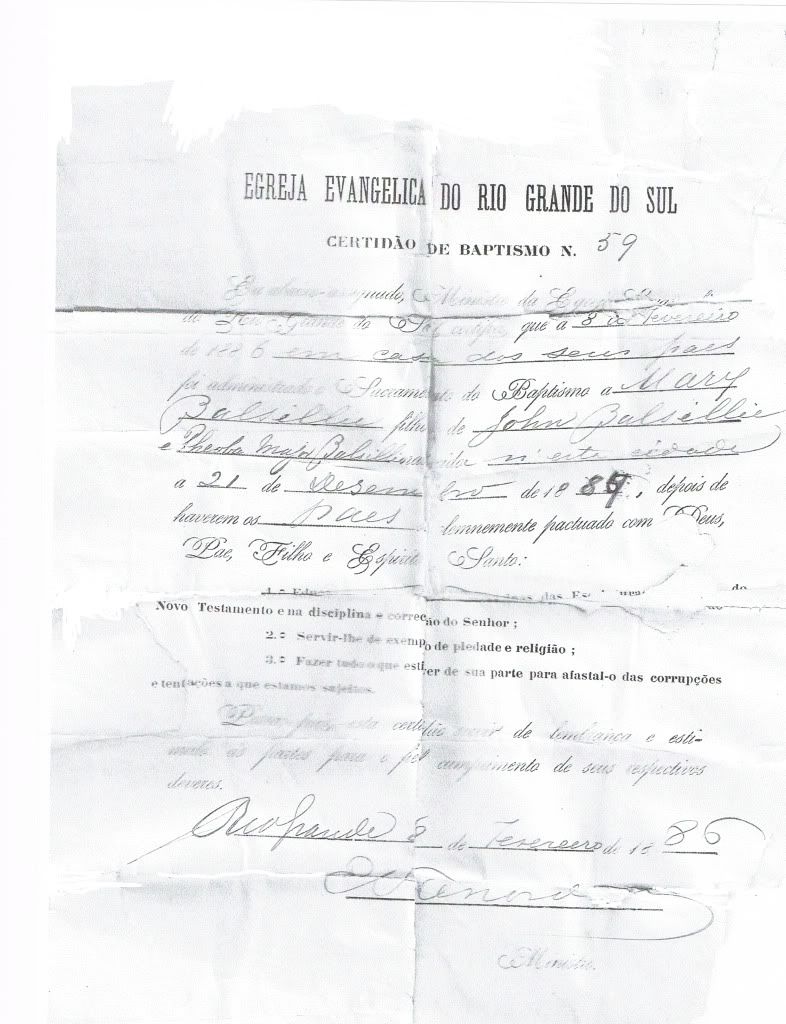 EGREJA EVANGELICA DO RIO GRANDE DO SUL
CERTIDÃO DE BAPTISMO N. 59
Eu abaixo-assignado, Ministro da Egreja
do Rio Grande do Sul certifico, que a 8 de Fevereiro
de 1886 em casa dos seus paes
foi administrado o Sacramento do Baptismo a Mary
Balsillie filha de John Balsillie
e Balsillie nascida n'esta cidade
a 21 de Desembro de 188, depois de
haverem os paes lemnemente pactuado com Deus,
Pae, Filho e Espirito Santo:
1.º das do
Novo Testamento e na disciplina e correcção do Senhor;
2.º Servir-lhe de exemplo de piedade e religião;
3.º Fazer tudo o que estiver de sua parte para afastal-o das corrupções
e tentações a que estamos sujeitos.
esta certidão servir de lembrança e esti-
mulo ás partes para o fiel cumprimento de seus respectivos
deveres.
Rio Grande 8 de Fevereiro de 1886
Ministro.